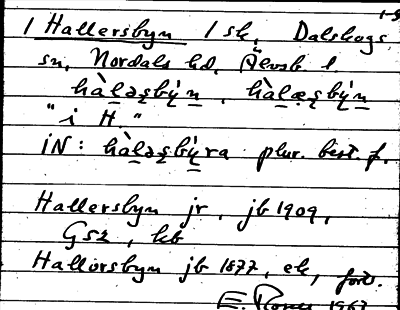 1-5
/ Hallersbyn / sk, Dalskogs
sn, Nordals hd, Älvsb. l.
hàləʂby̆n, hàlæʂby̆n
"i H."
iN: hàləʂby̆ra plur. best. f.
Hallersbyn jr, jb 1909,
Gsz, kb
Hallorsbyn jb 1877, ek,
E. 1967